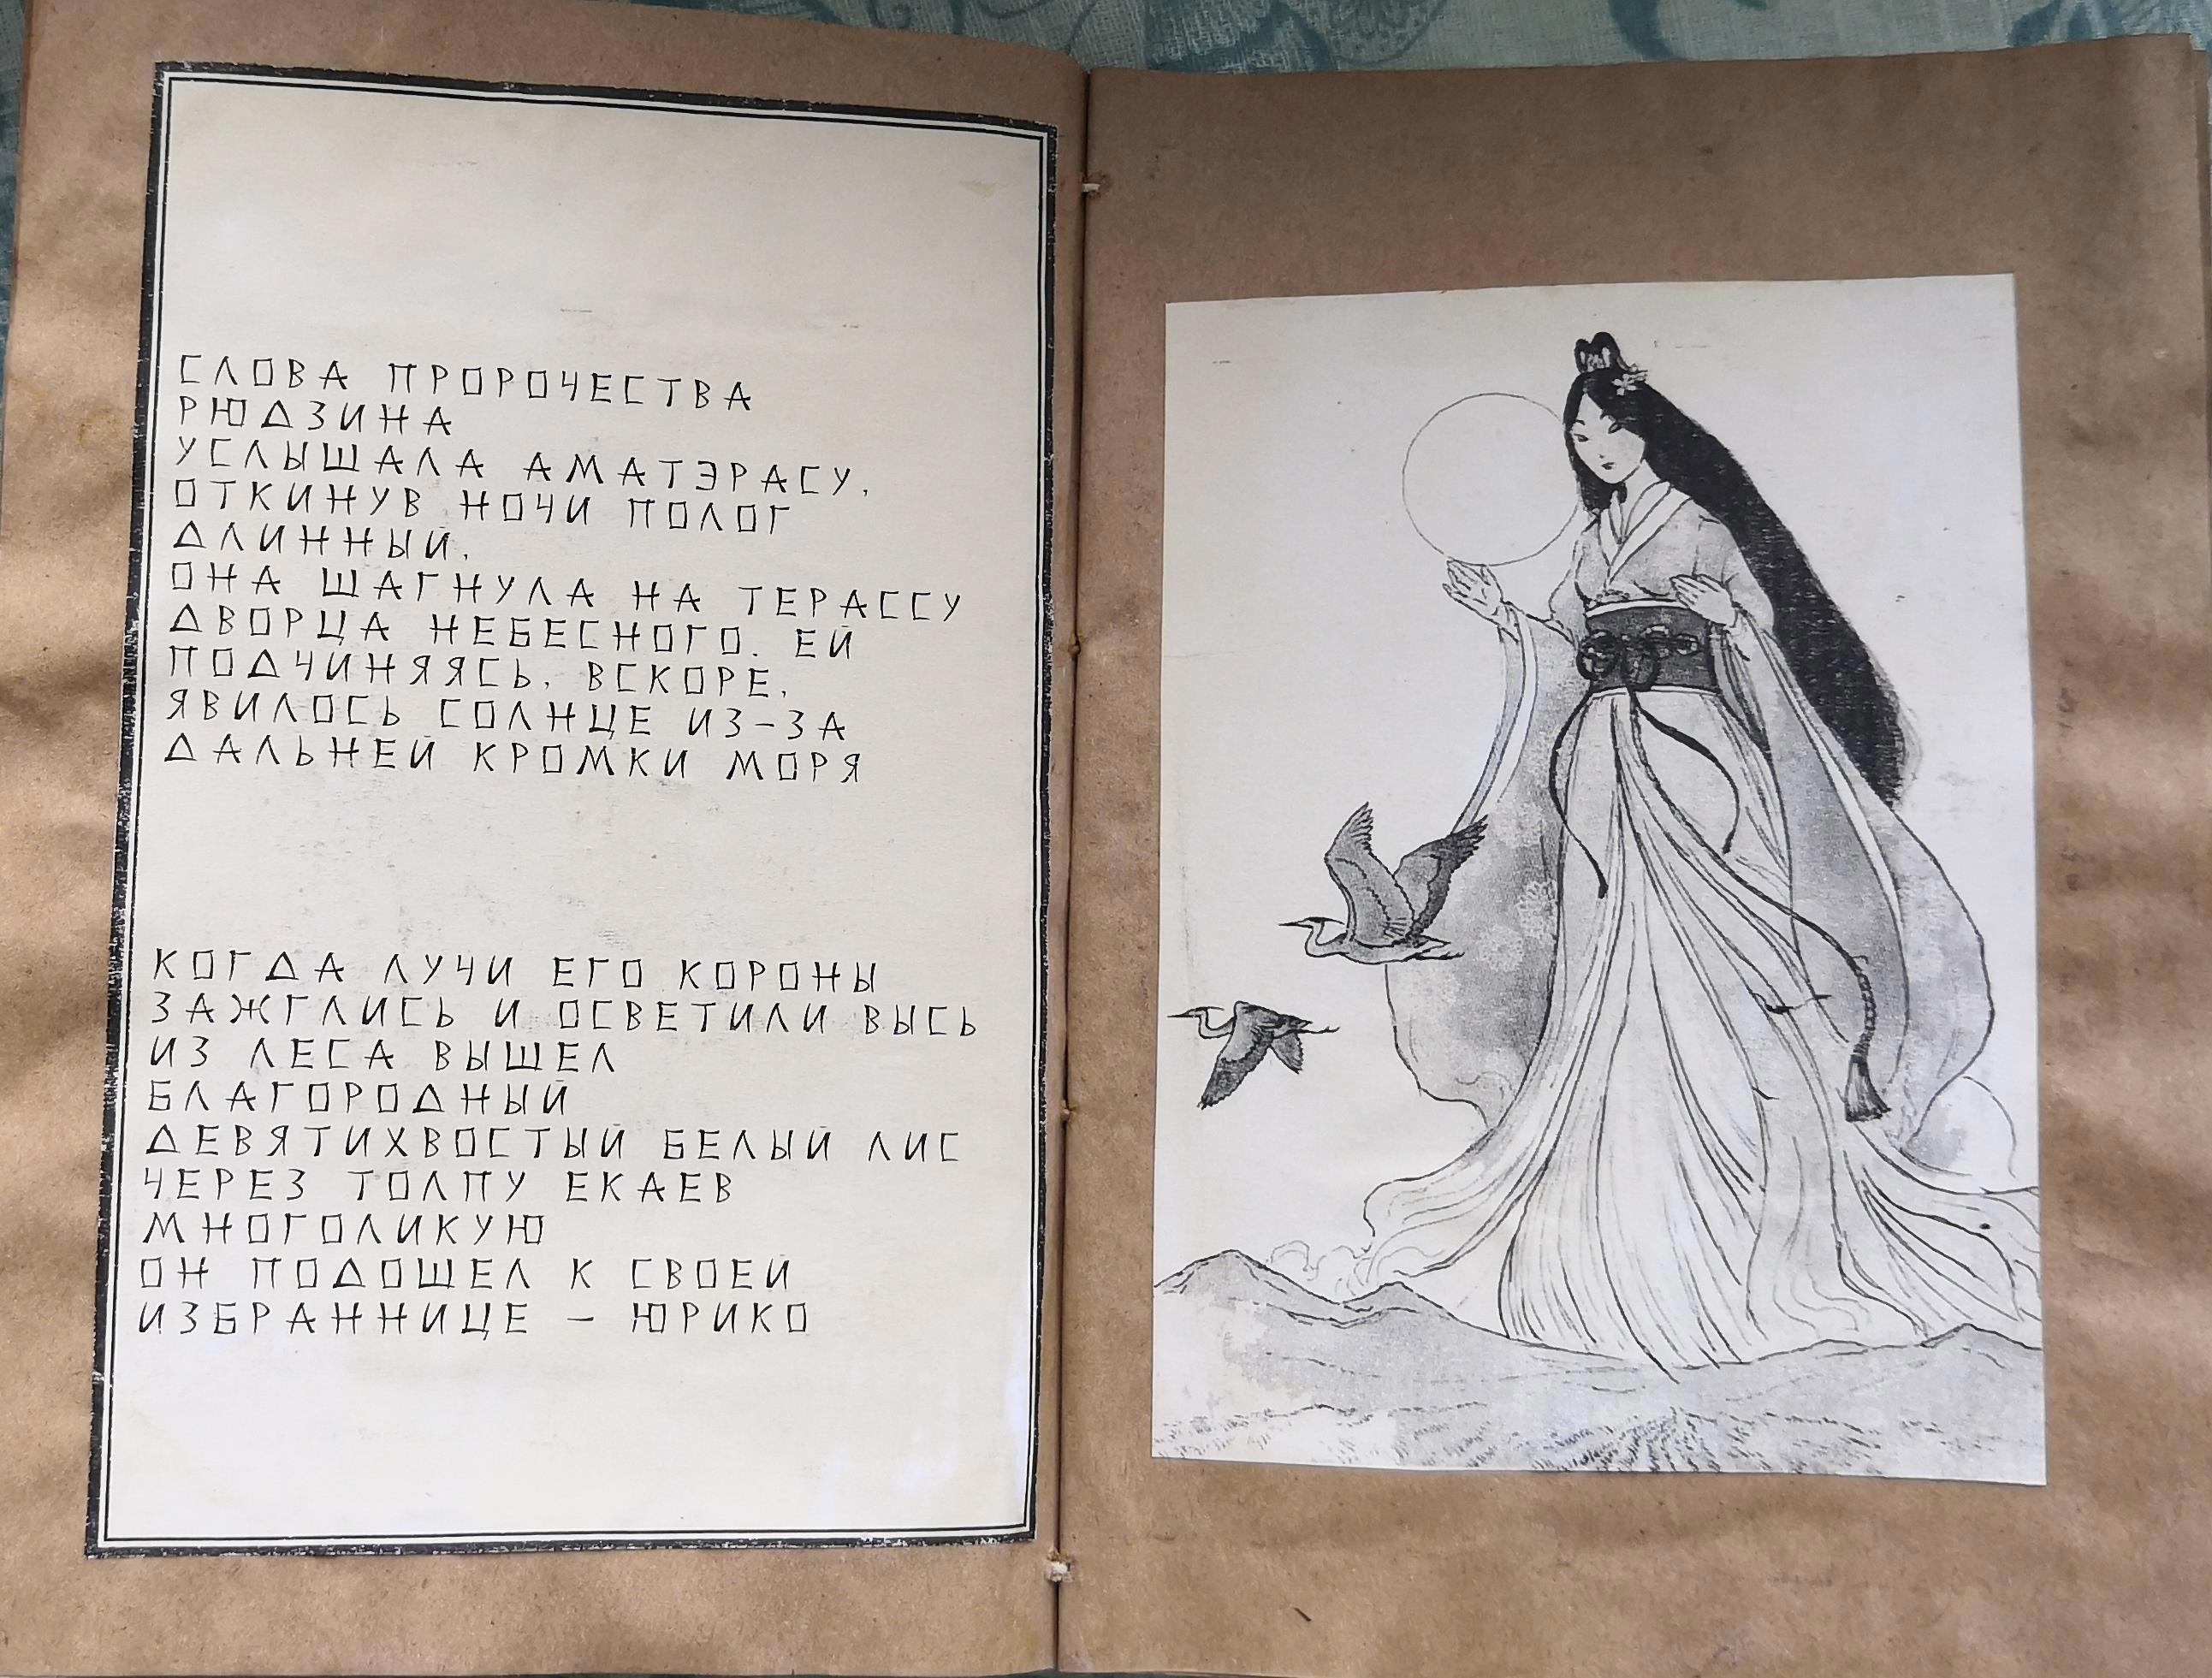 СЛОВА ПРОРОЧЕСТВА
РЮДЗИНА
УСЛЫШАЛА АМАТЭРАСУ,
ОТКИНУВ НОЧИ ПОЛОГ
ДЛИННЫЙ,
ОНА ШАГНУЛА НА ТЕРАССУ
ДВОРЦА НЕБЕСНОГО. ЕЙ
ПОДЧИНЯЯСЬ, ВСКОРЕ,
ЯВИЛОСЬ СОЛНЦЕ ИЗ-ЗА
ДАЛЬНЕЙ КРОМКИ МОРЯ
КОГДА ЛУЧИ ЕГО КОРОНЫ
ЗАЖГЛИСЬ И ОСВЕТИЛИ ВЫСЬ
ИЗ ЛЕСА ВЫШЕЛ
БЛАГОРОДНЫЙ
ДЕВЯТИХВОСТЫЙ БЕЛЫЙ ЛИС
ЧЕРЕЗ ТОЛПУ ЕКАЕВ
МНОГОЛИКУЮ
ОН ПОДОШЕЛ К СВОЕЙ
ИЗБРАННИЦЕ – ЮРИКО